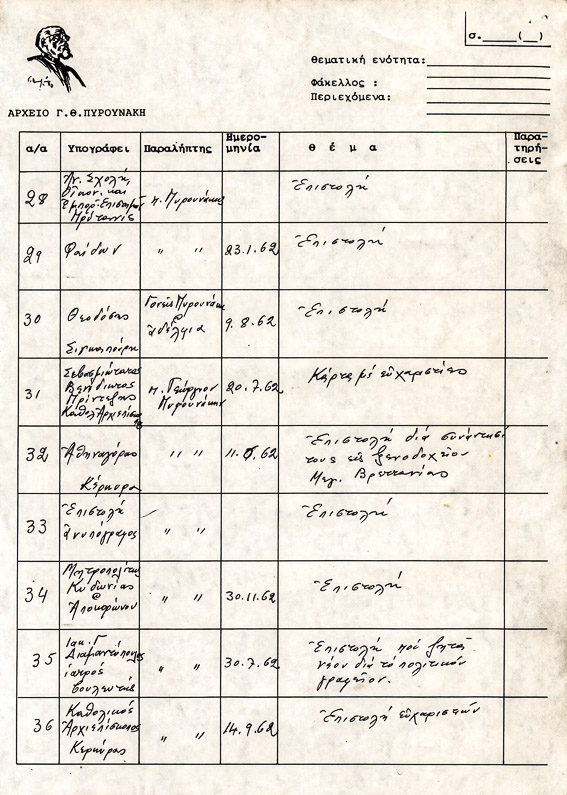 σ.____(__)
θεματική ενότητα:
Φάκελλος :
Περιεχόμενα:
ΑΡΧΕΙΟ Γ.Θ.ΠΥΡΟΥΝΑΚΗ
α/α Υπογράφει Παραλήπτης Ημερο-μηνία θ έ μ α Παρα-τηρή-σεις
28 Ἀν. Σχολή,
Οἰκον. καί
Ἐμπορ. Ἐπιστημῶν
Πρύτανις
π. Πυρουνάκης
Ἐπιστολή
29 Φαίδων " " 23.1.62 Ἐπιστολή
30 Θεοδόσης
Σιγκαπούρη
Γονεῖς Πυρουνάκη
@
ἀδέλφια
9.8.62 Ἐπιστολή
31 Σεβασμιώτατος
Βενέδικτος
Πρίντεζης
Καθολ. Ἀρχιεπίσκοπος
π. Γεώργιον
Πυρουνάκην
20.7.62 Κάρτα μέ εὐχαριστίες
32 Ἀθηναγόρας
Κέρκυρα
" " 11.6.62
Ἐπιστολή διά συνάντησί
τους εἰς ξενοδοχεῖον
Μεγ. Βρεττανίας
33 Ἐπιστολή
ἀνυπόγραφος
" " Ἐπιστολή
34 Μητροπολίτης
Κυδωνίας
@
Ἀποκορώνου
" " 30.11.62 Ἐπιστολή
35 Ιακ. Γ
Διαμαντόπουλος
ἰατρός
βουλευτής
" " 30.7.62
Ἐπιστολή πού ζητᾶ
νέον διά τό πολιτικόν
γραφεῖον.
36 Καθολικός
Ἀρχιεπίσκοπος
Κερκύρας
" " 14.9.62 Ἐπιστολή εὐχαριστιῶν